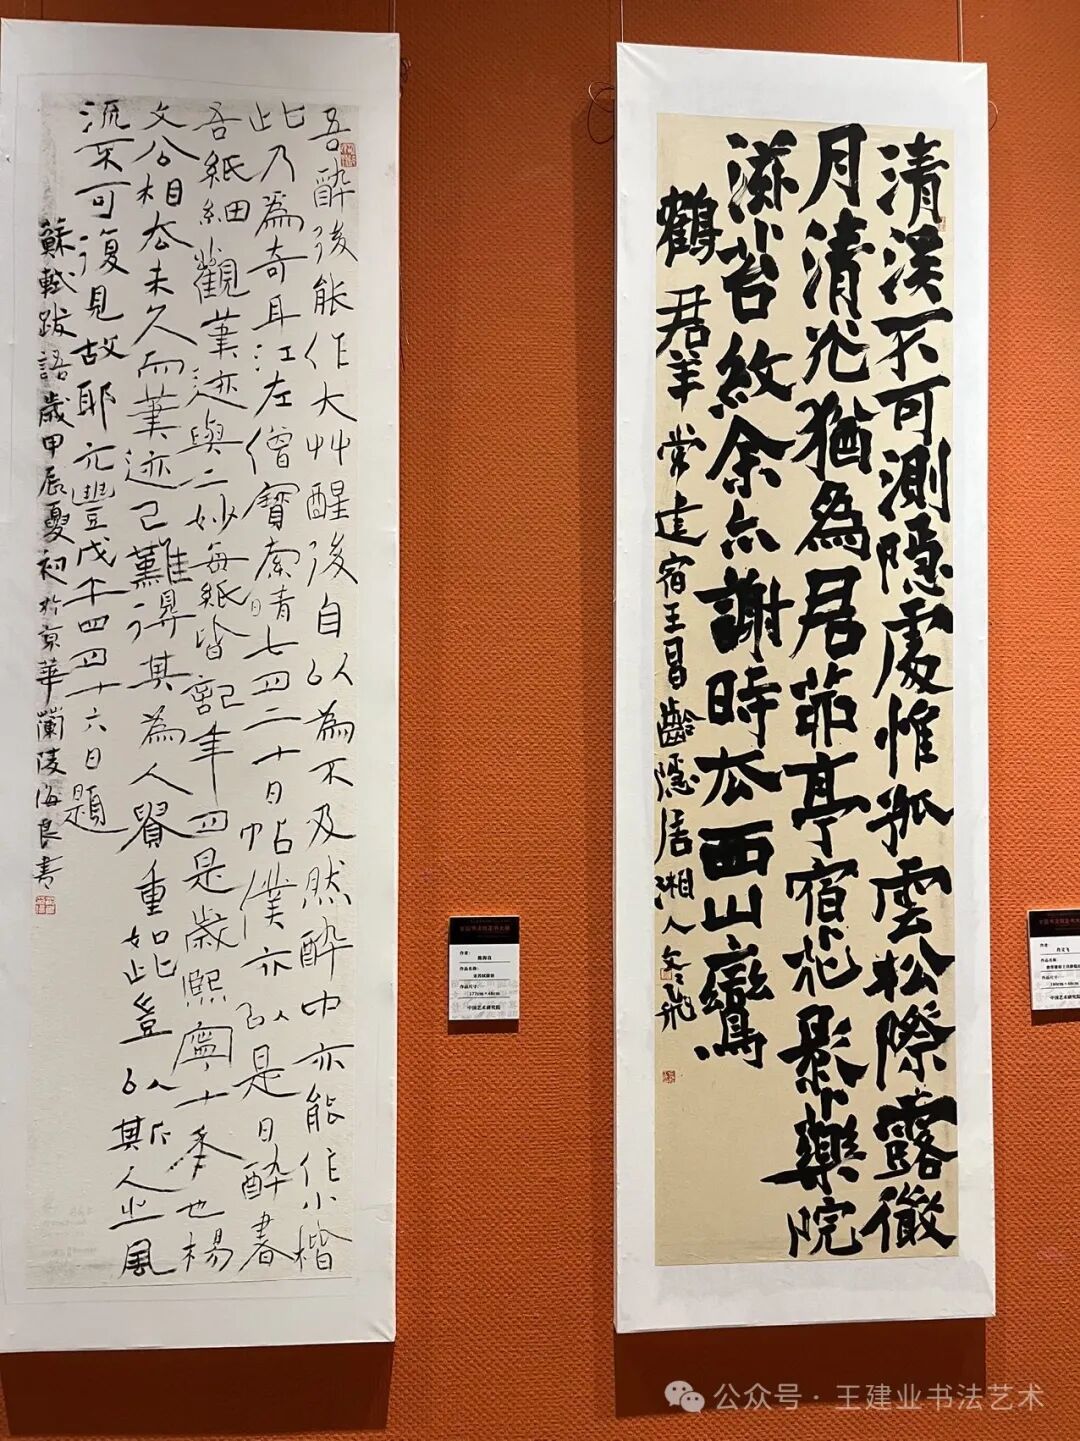 清溪不可測隱處惟孤雲松際露微
月清光猶為君茆亭宿花影藥院
滋苔紋余亦謝時去西山鸞
鶴君羊常建宿王昌齡隱居湘人文飛
吾醉後能作大艸醒後自以為不及然醉中亦能作小楷
此乃為奇耳江左僧寶索靖七月二十日帖僕亦以是日醉書
吾紙細觀筆迹與二妙每紙皆記年月是歲熙寧十年也楊
文公相去未久而筆迹已難得其為人貴重如此豈以斯人之風
流不可復見故耶元豐戊午四月十六日題
蘇軾跋語歲甲辰夏初於京華蘭陵海良書
作者：
作品名称：
作品尺寸：
177cm×48cm
中国艺术研究院
作者：
作品名称：
作品尺寸：
中国艺术研究院
公众号·王建业书法艺术